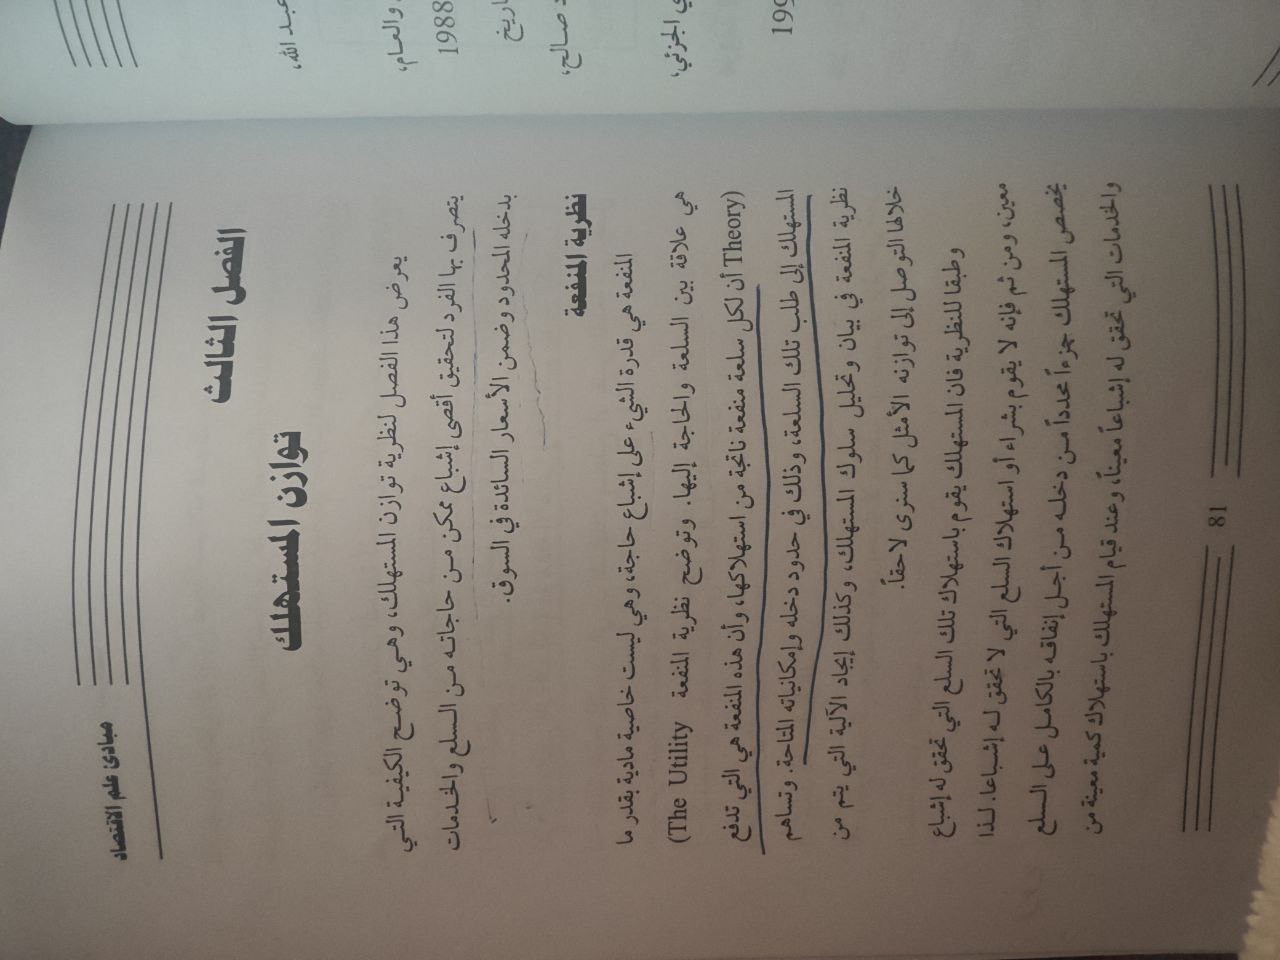 مبادئ علم الاقتصاد
الفصل الثالث
توازن المستهلك
يعرض هذا الفصل لنظرية توازن المستهلك، وهي توضح الكيفية التي
يتصرف بها الفرد لتحقيق أقصى إشباع ممكن من حاجاته من السلع والخدمات
بدخله المحدود وضمن الأسعار السائدة في السوق.
نظرية المنفعة
المنفعة هي قدرة الشيء على إشباع حاجة، وهي ليست خاصية مادية بقدر ما
هي علاقة بين السلعة والحاجة إليها. وتوضح نظرية المنفعة (The Utility
Theory) أن لكل سلعة منفعة ناتجة من استهلاكها، وأن هذه المنفعة هي التي تدفع
المستهلك إلى طلب تلك السلعة، وذلك في حدود دخله وإمكانياته المتاحة. وتساهم
نظرية المنفعة في بيان وتحليل سلوك المستهلك، وكذلك إيجاد الآلية التي يتم من
خلالها التوصل إلى توازنه الأمثل كما سنرى لاحقاً.
وطبقا للنظرية فان المستهلك يقوم باستهلاك تلك السلع التي تحقق له إشباع
معين، ومن ثم فإنه لا يقوم بشراء أو استهلاك السلع التي لا تحقق له إشباعا. لذا
يخصص المستهلك جزءاً محدداً من دخله من أجل إنفاقه بالكامل على السلع
والخدمات التي تحقق له إشباعاً معيناً، وعند قيام المستهلك باستهلاك كمية معينة من
81
عبد الله،
والعام،
1988
صالح،
الجزئي،